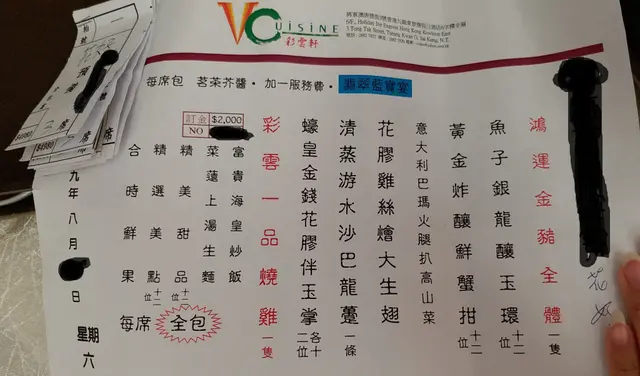 VCUISINE
彩雲軒
每席包 茗茶芥醬・加一服務費・翡翠藍寶宴
鴻運金豬全體一隻
魚子銀龍釀玉環十二位
黃金炸釀鮮蟹拑十二位
意大利巴瑪火腿扒高山菜
花膠雞絲燴大生翅
清蒸游水沙巴龍躉一條
蠔皇金錢花膠伴玉掌各十二位
彩雲一品燒雞一隻
訂金 $2,000
NO
富貴海皇炒飯
菜薳上湯生麵
精美甜品十二位
精選美點十二位
合時鮮果
每席全包
九年八月 日 星期六